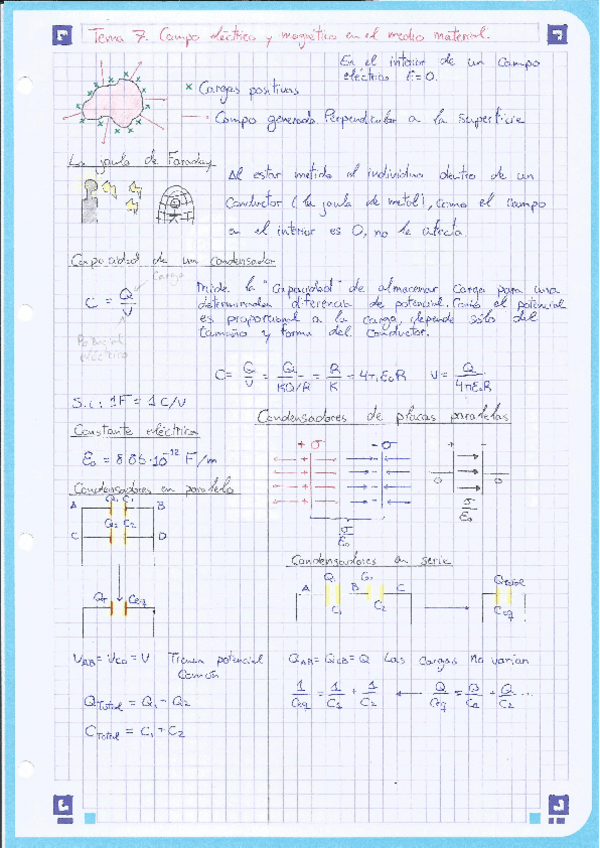 Tema 7. Campo eléctrico y magnético en el medio material.
En el interior de un campo
eléctrico E=0.
x Cargas positivas
Campo generado. Perpendicular a la superficie
La jaula de Faraday
Al estar metido el individuo dentro de un
conductor (la jaula de metal), como el campo
en el interior es 0, no le afecta.
Capacidad de un condensador
Carga
C = Q/V
Potencial
eléctrico
Mide la "capacidad" de almacenar carga para una
determinada diferencia de potencial. Como el potencial
es proporcional a la carga, depende sólo del
tamaño y forma del conductor.
C = Q/V = Q/KQ/R = R/K = 4πε₀R V = Q/4πε₀R
S.i: 1F = 1 C/V
Constante eléctrica
ε₀ = 8.85·10⁻¹² F/m
Condensadores de placas paralelas
+σ -σ + -
0 0
σ/ε₀ σ/ε₀
Condensadores en paralelo
Q₁ C₁
A B
Q₂ C₂
C D
QT Ceq
Condensadores en serie
Q₁ Q₁ Qtotal
A B C
C₁ C₂ Ceq
VAB = VCD = V Tienen potencial
común
QTotal = Q₁ + Q₂
CTotal = C₁ + C₂
QAB = QCB = Q Las cargas no varían
1/Ceq = 1/C₁ + 1/C₂ ← Q/Ceq = Q/C₁ + Q/C₂ ...